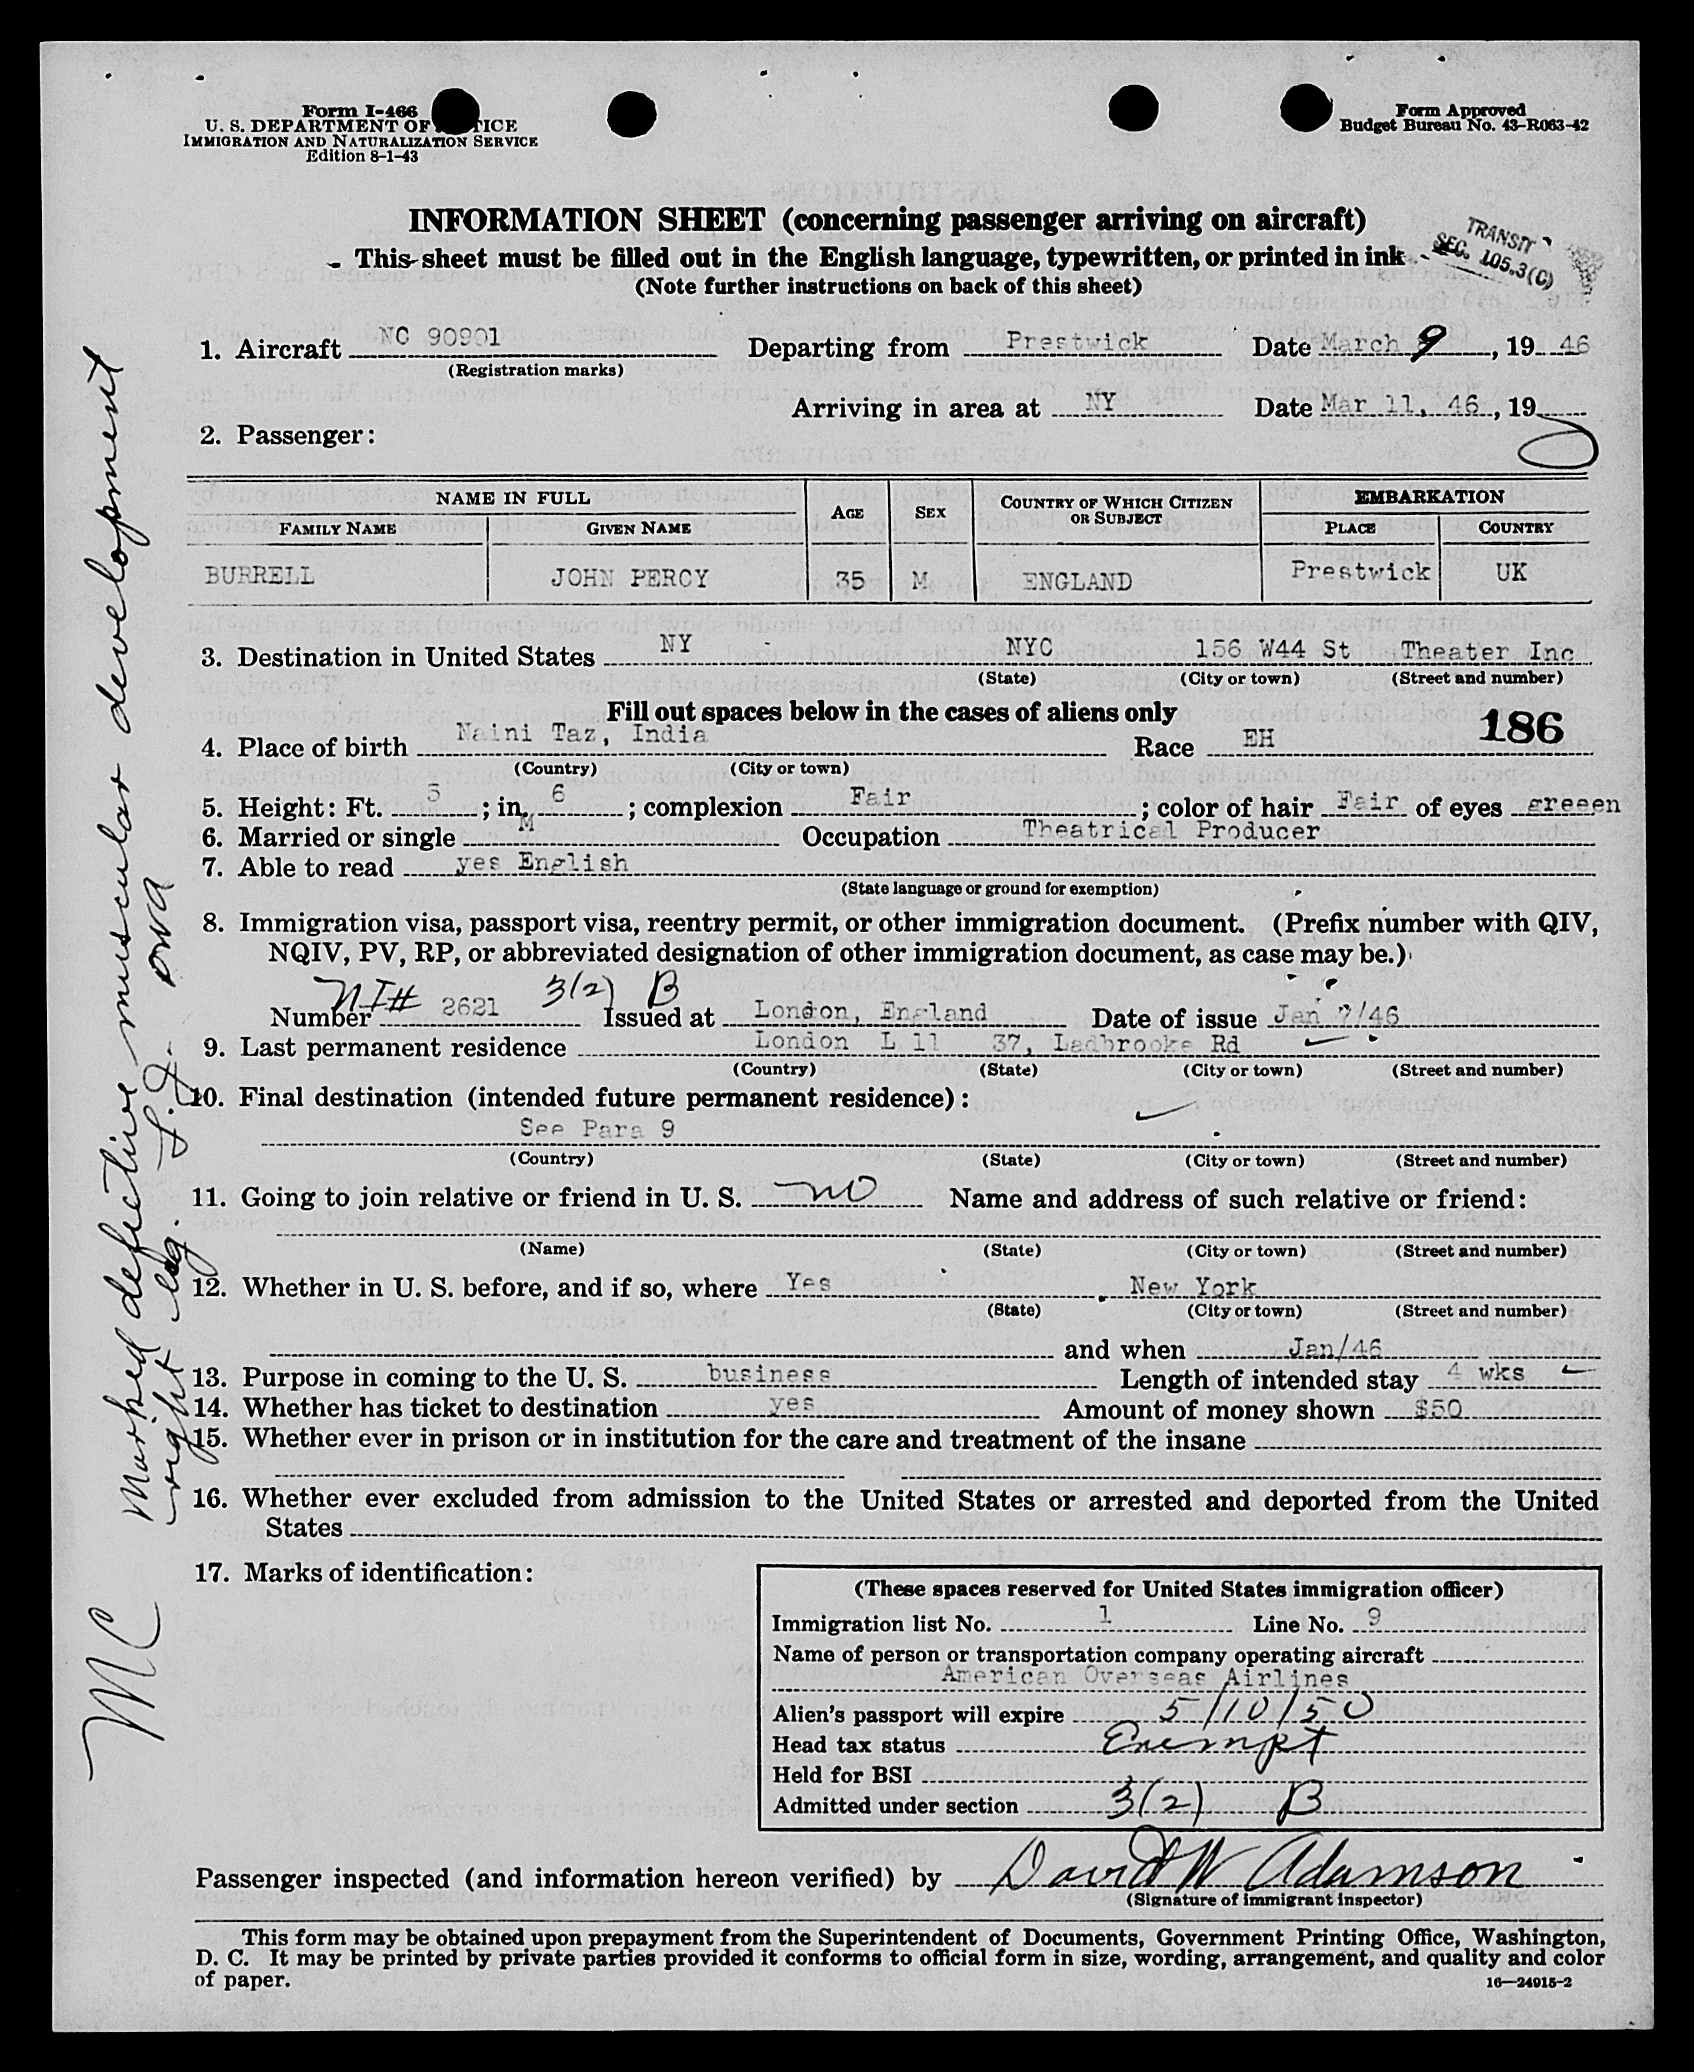 Form I-466
U. S. DEPARTMENT OF JUSTICE
IMMIGRATION AND NATURALIZATION SERVICE
Edition 8-1-43
Form Approved
Budget Bureau No. 43-R063-42
INFORMATION SHEET (concerning passenger arriving on aircraft)
This sheet must be filled out in the English language, typewritten, or printed in ink
(Note further instructions on back of this sheet)
TRANSIT
SEC. 105.3(C)
1. Aircraft NC 90901 Departing from Prestwick Date March 9, 19 46
(Registration marks)
Arriving in area at NY Date Mar 11, 46, 19
2. Passenger:
NAME IN FULL AGE SEX COUNTRY OF WHICH CITIZEN OR SUBJECT EMBARKATION
FAMILY NAME GIVEN NAME PLACE COUNTRY
BURRELL JOHN PERCY 35 M ENGLAND Prestwick UK
3. Destination in United States NY NYC 156 W44 St Theater Inc
(State) (City or town) (Street and number)
Fill out spaces below in the cases of aliens only
186
4. Place of birth Naini Taz, India Race EH
(Country) (City or town)
5. Height: Ft. 5 ; in. 6 ; complexion Fair ; color of hair Fair of eyes greeen
6. Married or single M Occupation Theatrical Producer
7. Able to read yes English
(State language or ground for exemption)
8. Immigration visa, passport visa, reentry permit, or other immigration document. (Prefix number with QIV,
NQIV, PV, RP, or abbreviated designation of other immigration document, as case may be.)
NI# 3(2) B
Number 2621 Issued at London, England Date of issue Jan 7/46
9. Last permanent residence London L 11 37, Ladbrooke Rd
(Country) (State) (City or town) (Street and number)
10. Final destination (intended future permanent residence):
See Para 9
(Country) (State) (City or town) (Street and number)
11. Going to join relative or friend in U. S. no Name and address of such relative or friend:
(Name) (State) (City or town) (Street and number)
12. Whether in U. S. before, and if so, where Yes New York
(State) (City or town) (Street and number)
and when Jan/46
13. Purpose in coming to the U. S. business Length of intended stay 4 wks
14. Whether has ticket to destination yes Amount of money shown $50
15. Whether ever in prison or in institution for the care and treatment of the insane
16. Whether ever excluded from admission to the United States or arrested and deported from the United
States
17. Marks of identification:
(These spaces reserved for United States immigration officer)
Immigration list No. 1 Line No. 9
Name of person or transportation company operating aircraft
American Overseas Airlines
Alien's passport will expire 5/10/50
Head tax status Exempt
Held for BSI
Admitted under section 3(2) B
Passenger inspected (and information hereon verified) by David W Adamson
(Signature of immigrant inspector)
This form may be obtained upon prepayment from the Superintendent of Documents, Government Printing Office, Washington,
D. C. It may be printed by private parties provided it conforms to official form in size, wording, arrangement, and quality and color
of paper.
16—24915-2
Marked defective muscular development
right leg.
MC